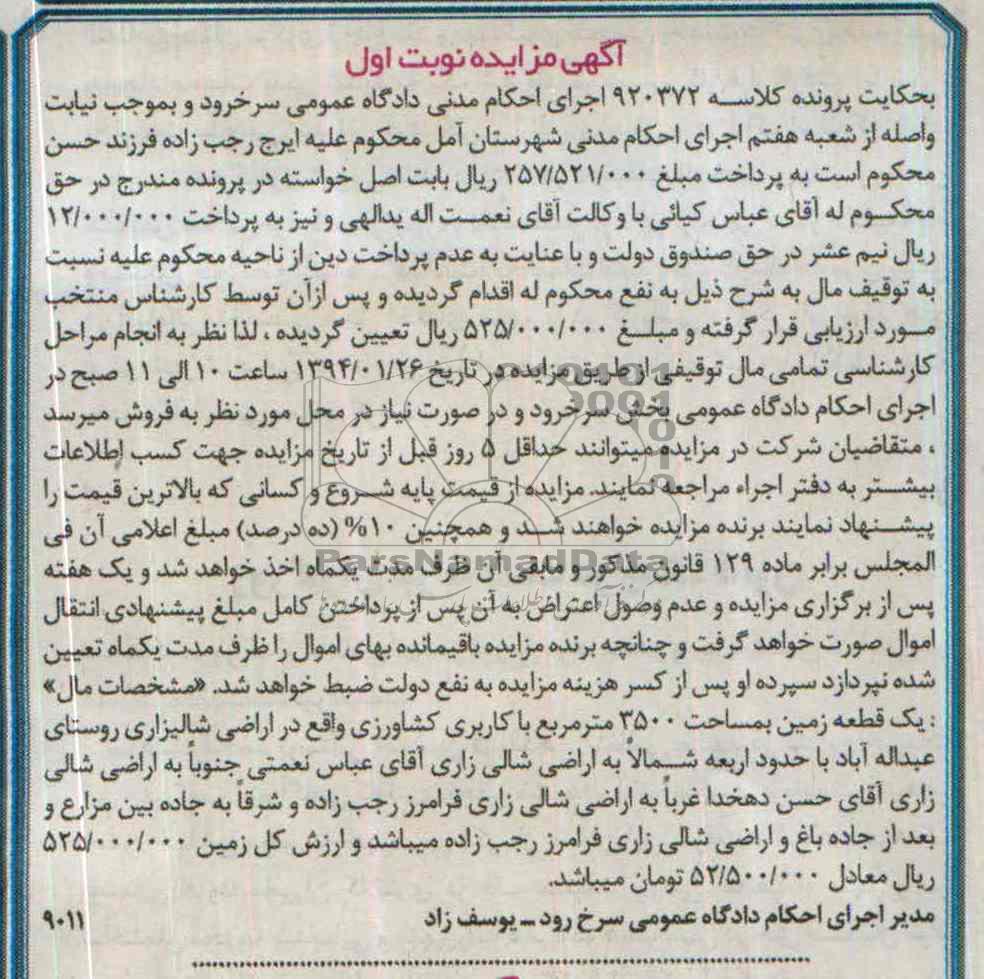 آگهی مزایده نوبت اول
بحکایت پرونده کلاسه ۹۲۰۳۷۲ اجرای احکام مدنی دادگاه عمومی سرخرود و بموجب نیابت
واصله از شعبه هفتم اجرای احکام مدنی شهرستان آمل محکوم علیه ایرج رجب زاده فرزند حسن
محکوم است به پرداخت مبلغ ۲۵۷/۵۲۱/۰۰۰ ریال بابت اصل خواسته در پرونده مندرج در حق
محکوم له آقای عباس کیائی با وکالت آقای نعمت اله یدالهی و نیز به پرداخت ۱۲/۰۰۰/۰۰۰
ریال نیم عشر در حق صندوق دولت و با عنایت به عدم پرداخت دین از ناحیه محکوم علیه نسبت
به توقیف مال به شرح ذیل به نفع محکوم له اقدام گردیده و پس ازآن توسط کارشناس منتخب
مورد ارزیابی قرار گرفته و مبلغ ۵۲۵/۰۰۰/۰۰۰ ریال تعیین گردیده ، لذا نظر به انجام مراحل
کارشناسی تمامی مال توقیفی از طریق مزایده در تاریخ ۱۳۹۴/۰۱/۲۶ ساعت ۱۰ الی ۱۱ صبح در
اجرای احکام دادگاه عمومی بخش سرخرود و در صورت نیاز در محل مورد نظر به فروش میرسد
، متقاضیان شرکت در مزایده میتوانند حداقل ۵ روز قبل از تاریخ مزایده جهت کسب اطلاعات
بیشتر به دفتر اجراء مراجعه نمایند. مزایده از قیمت پایه شروع و کسانی که بالاترین قیمت را
پیشنهاد نمایند برنده مزایده خواهند شد و همچنین ۱۰% (ده درصد) مبلغ اعلامی آن فی
المجلس برابر ماده ۱۲۹ قانون مذکور و مابقی آن ظرف مدت یکماه اخذ خواهد شد و یک هفته
پس از برگزاری مزایده و عدم وصول اعتراض به آن پس از پرداختن کامل مبلغ پیشنهادی انتقال
اموال صورت خواهد گرفت و چنانچه برنده مزایده باقیمانده بهای اموال را ظرف مدت یکماه تعیین
شده نپردازد سپرده او پس از کسر هزینه مزایده به نفع دولت ضبط خواهد شد. «مشخصات مال»
: یک قطعه زمین بمساحت ۳۵۰۰ مترمربع با کاربری کشاورزی واقع در اراضی شالیزاری روستای
عبداله آباد با حدود اربعه شمالاً به اراضی شالی زاری آقای عباس نعمتی جنوباً به اراضی شالی
زاری آقای حسن دهخدا غرباً به اراضی شالی زاری فرامرز رجب زاده و شرقاً به جاده بین مزارع و
بعد از جاده باغ و اراضی شالی زاری فرامرز رجب زاده میباشد و ارزش کل زمین ۵۲۵/۰۰۰/۰۰۰
ریال معادل ۵۲/۵۰۰/۰۰۰ تومان میباشد.
مدیر اجرای احکام دادگاه عمومی سرخ رود ـ یوسف زاد
۹۰۱۱
ParsNamadData